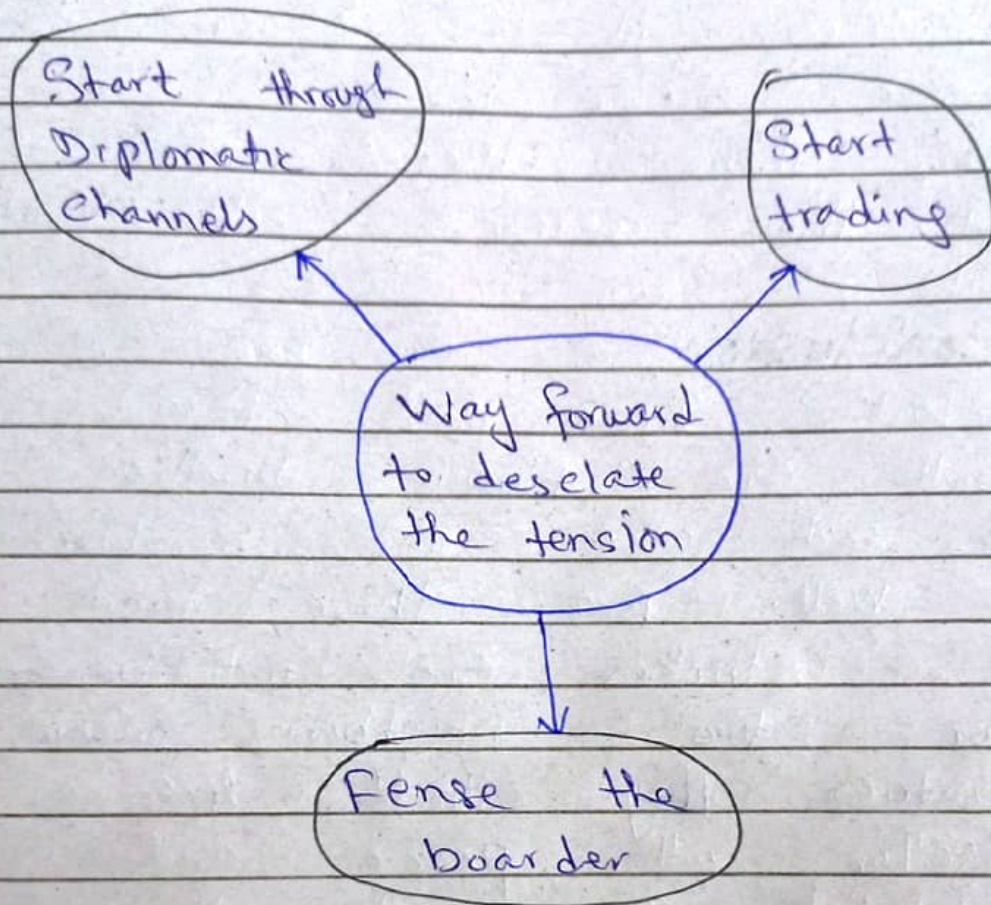 Start through
Diplomatic
Channels
Start
trading
Way forward
to desclate
the tension
Fense the
boarder